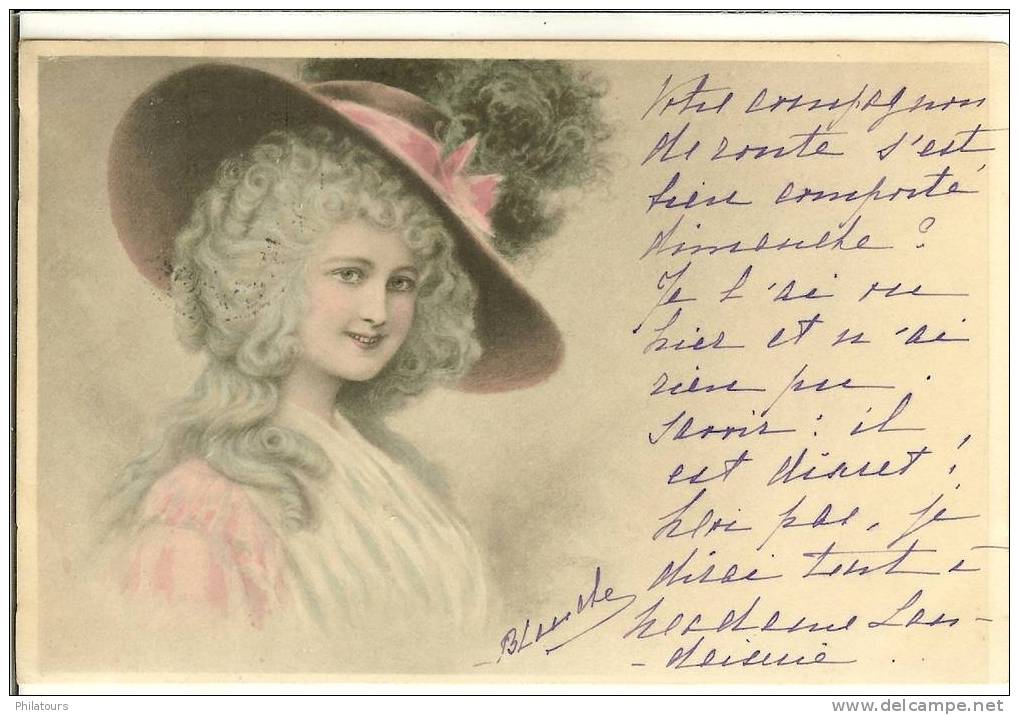 Votre compagnon
de route s'est
bien comporté
dimanche ?
Je l'ai vu
hier et n'ai
rien pu
savoir : il
est discret !
Moi pas, je
dirai tout à
Madame Lan-
Blanche
Philatours
www.delcampe.net